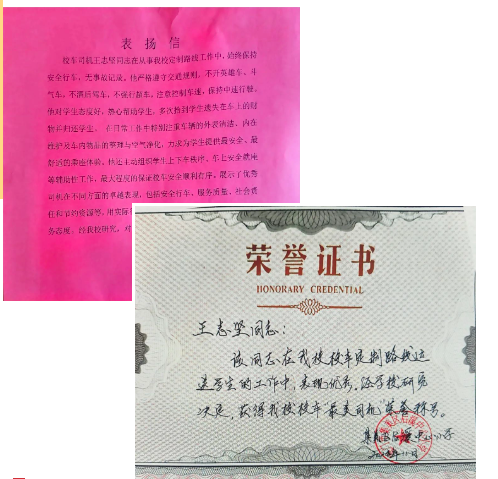 表扬信
校车司机王志坚同志在从事我校定制路线工作中,始终保持
安全行车,无事故记录。他严格遵守交通规则,不开英雄车、斗
气车,不酒后驾车,不强行超车,注意控制车速,保持中速行驶。
他对学生态度好,热心帮助学生,多次捡到学生遗失在车上的财
物并归还学生。在日常工作中特别注重车辆的外表清洁、内在
维护及车内物品的整理与空气净化,力求为学生提供最安全、最
舒适的乘座体验。他还主动组织学生上下车秩序,车上安全就座
等辅助性工作,最大程度的保证校车安全顺利有序,展示了优秀
司机在不同方面的卓越表现,包括安全行车、服务质量、社会责
任和节约资源等,用实际
务态度。经我校研究,对
荣誉证书
HONORARY CREDENTIAL
王志坚同志:
该同志在我校校车定制路线运
送学生的工作中,表现优秀,经学校研究
决定,获得我校校车"最美司机"荣誉称号。
小学